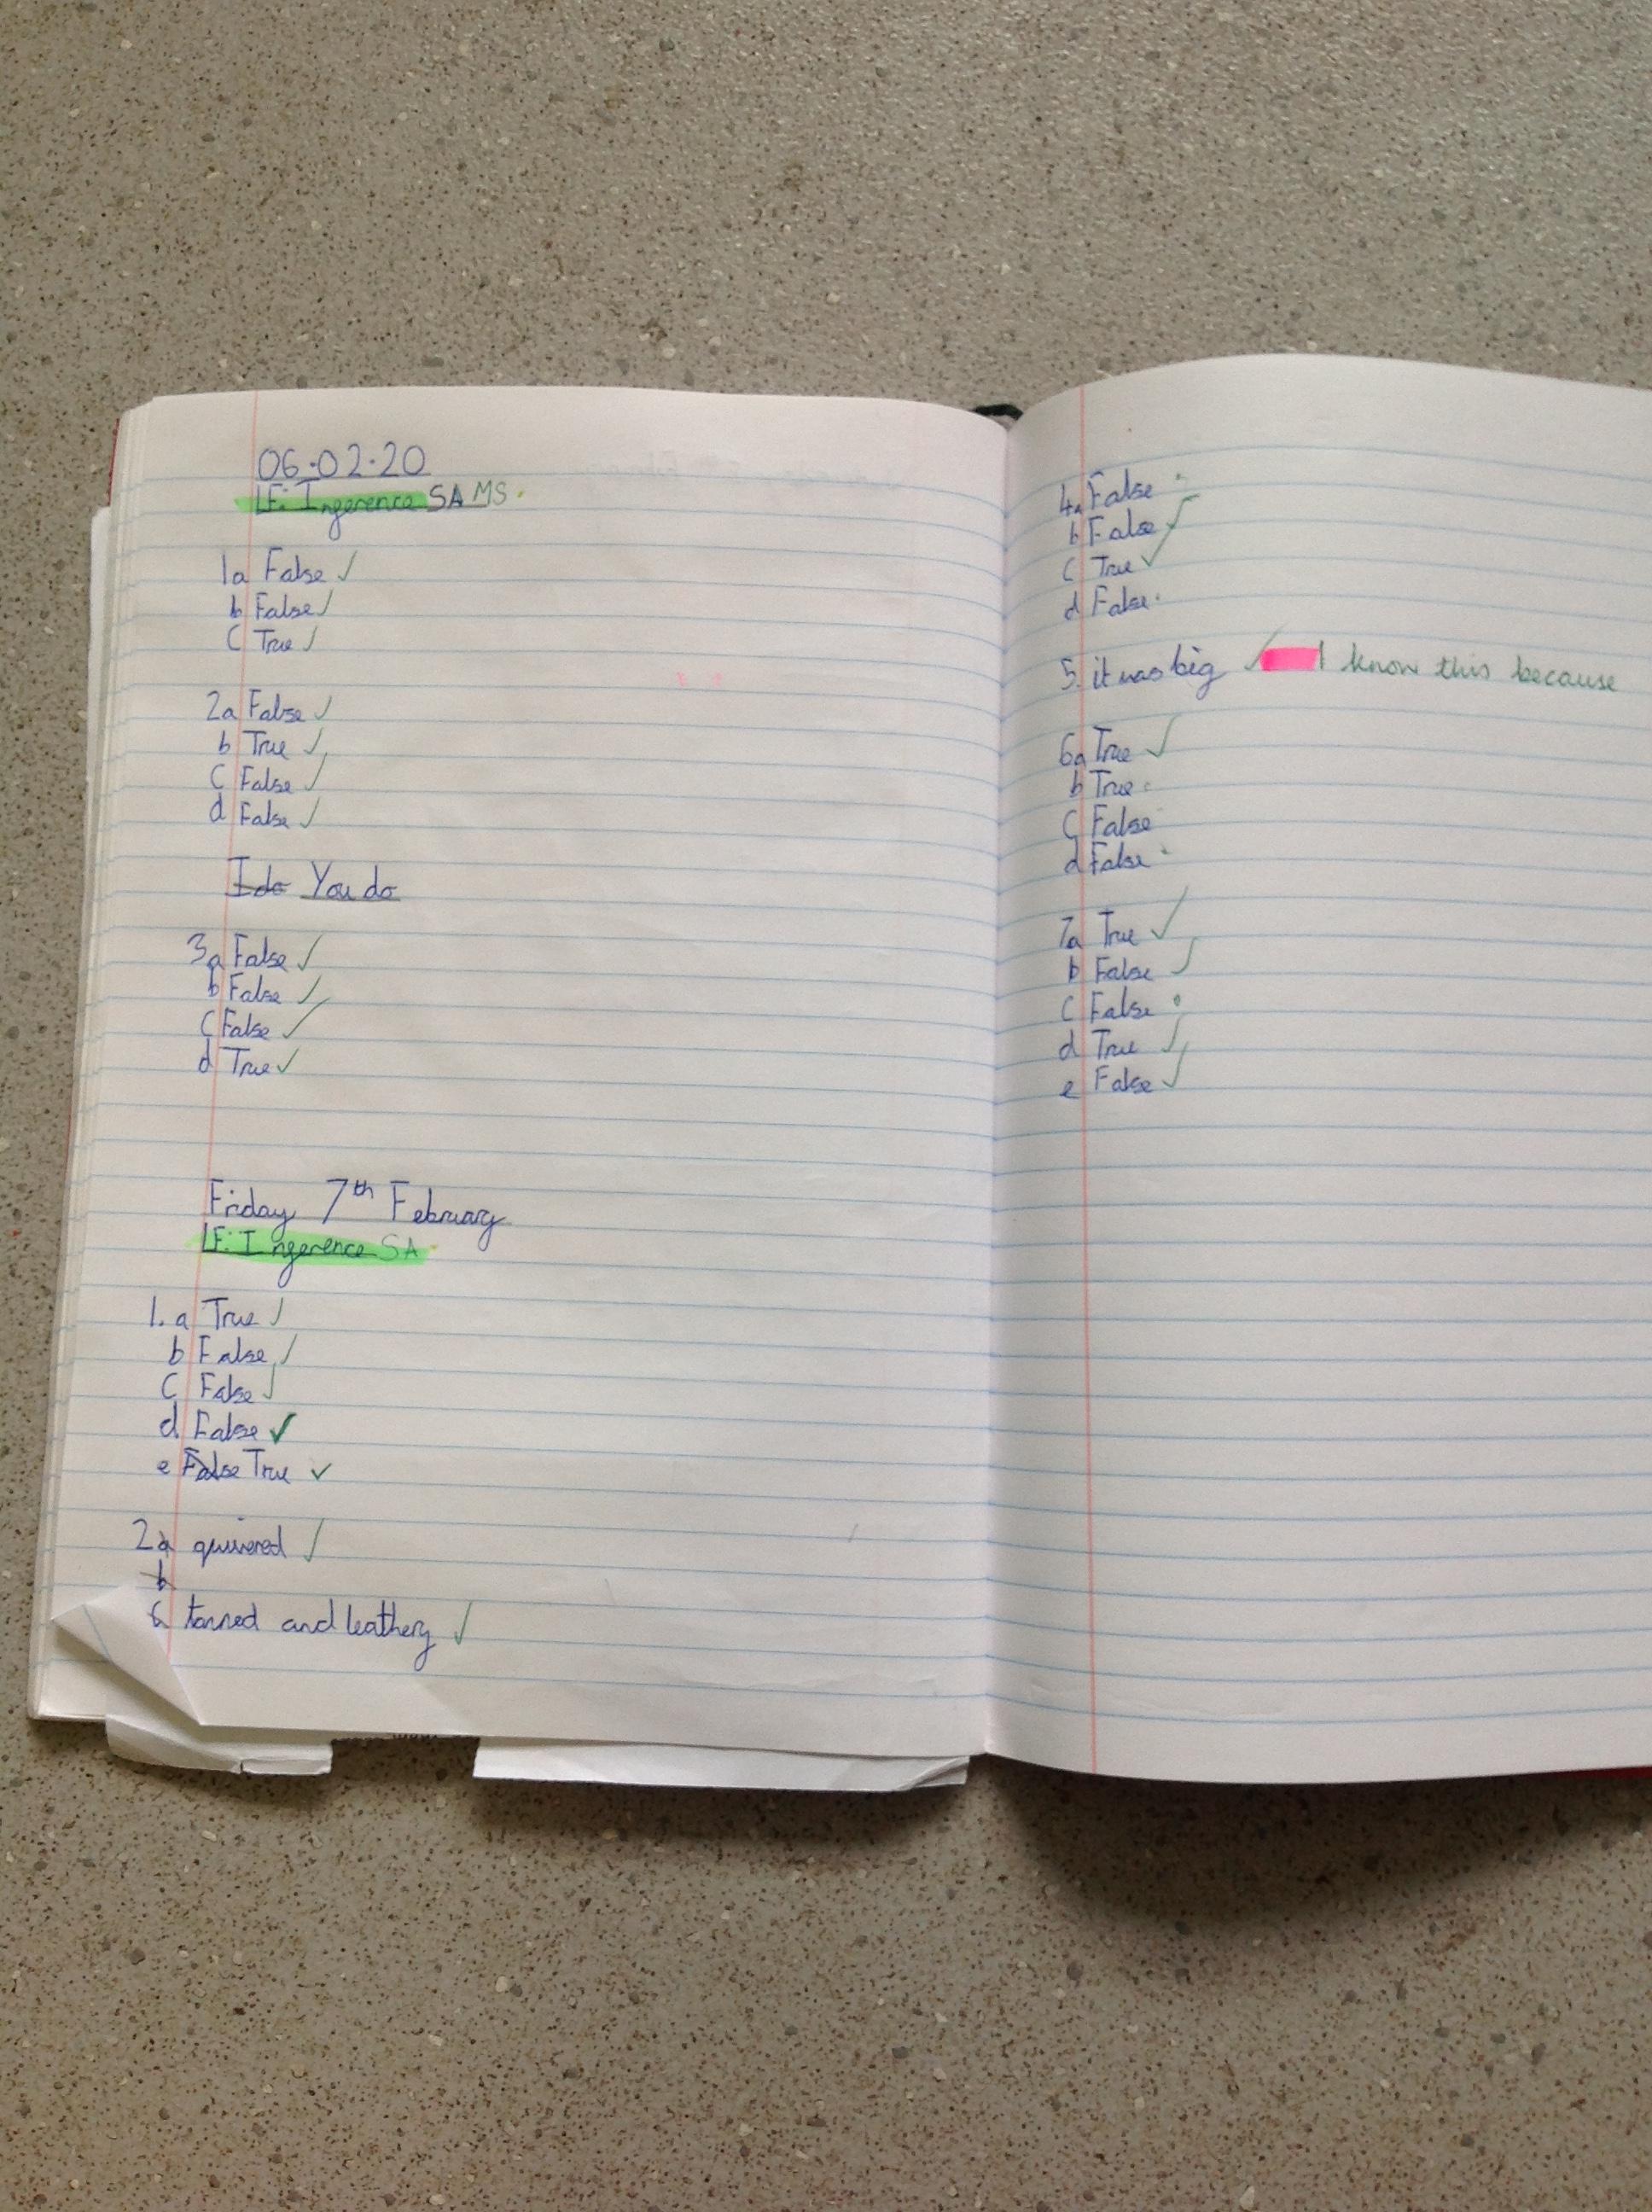 06.02.20
LF: Ingerence SA MS.
1a False ✓
b False ✓
C True ✓
2a False ✓
b True ✓
C False ✓
d False ✓
I do You do
3a False ✓
b False ✓
C False ✓
d True ✓
Friday 7th February
LF: Ingerence SA
1. a True ✓
b False ✓
C False ✓
d False ✓
e False True ✓
2a quivered ✓
b
tanned and leathery ✓
4a False ·
b False ✓
C True ✓
d False ·
5. it was big ✓ I know this because
6a True ✓
b True ·
C False
d False ·
7a True ✓
b False ✓
C False ·
d True ✓
e False ✓